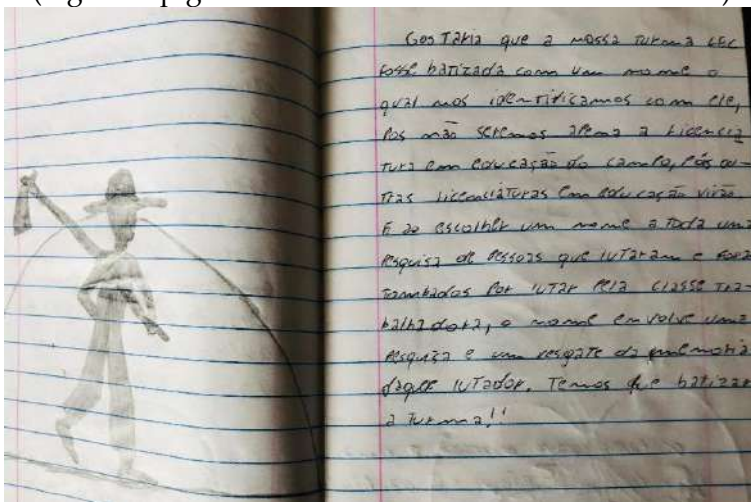 Gostaria que a nossa turma LEC
fosse batizada com um nome o
qual nos identificamos com ele,
Pos não seremos apena a Licencia
tura em educação do campo, Pós ou-
tras Licenciaturas em educação virão.
E ao escolher um nome a toda uma
Pesquisa de Pessoas que lutaram e fora
tombados Por lutar Pela classe tra-
balhadora, o nome envolve uma
Pesquisa e um resgate da memória
daquele lutador. Temos que batizar
a turma!!